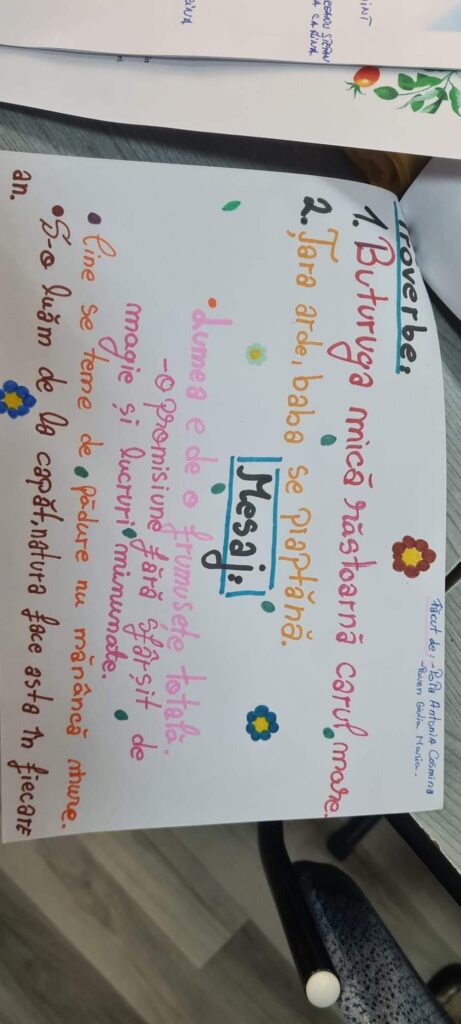 Proverbe:
1. Buturuga mică răstoarnă carul mare.
2. Țara arde, baba se piaptănă.
Mesaj:
• Lumea e de o frumusețe totală,
-o promisiune fără sfârșit de
magie și lucruri minunate.
• Cine se teme de pădure nu mănâncă mure.
• S-o luăm de la capăt, natura face asta în fiecare
an.
Făcut de: -Popa Antonia Cosmina
Giulia Maria.